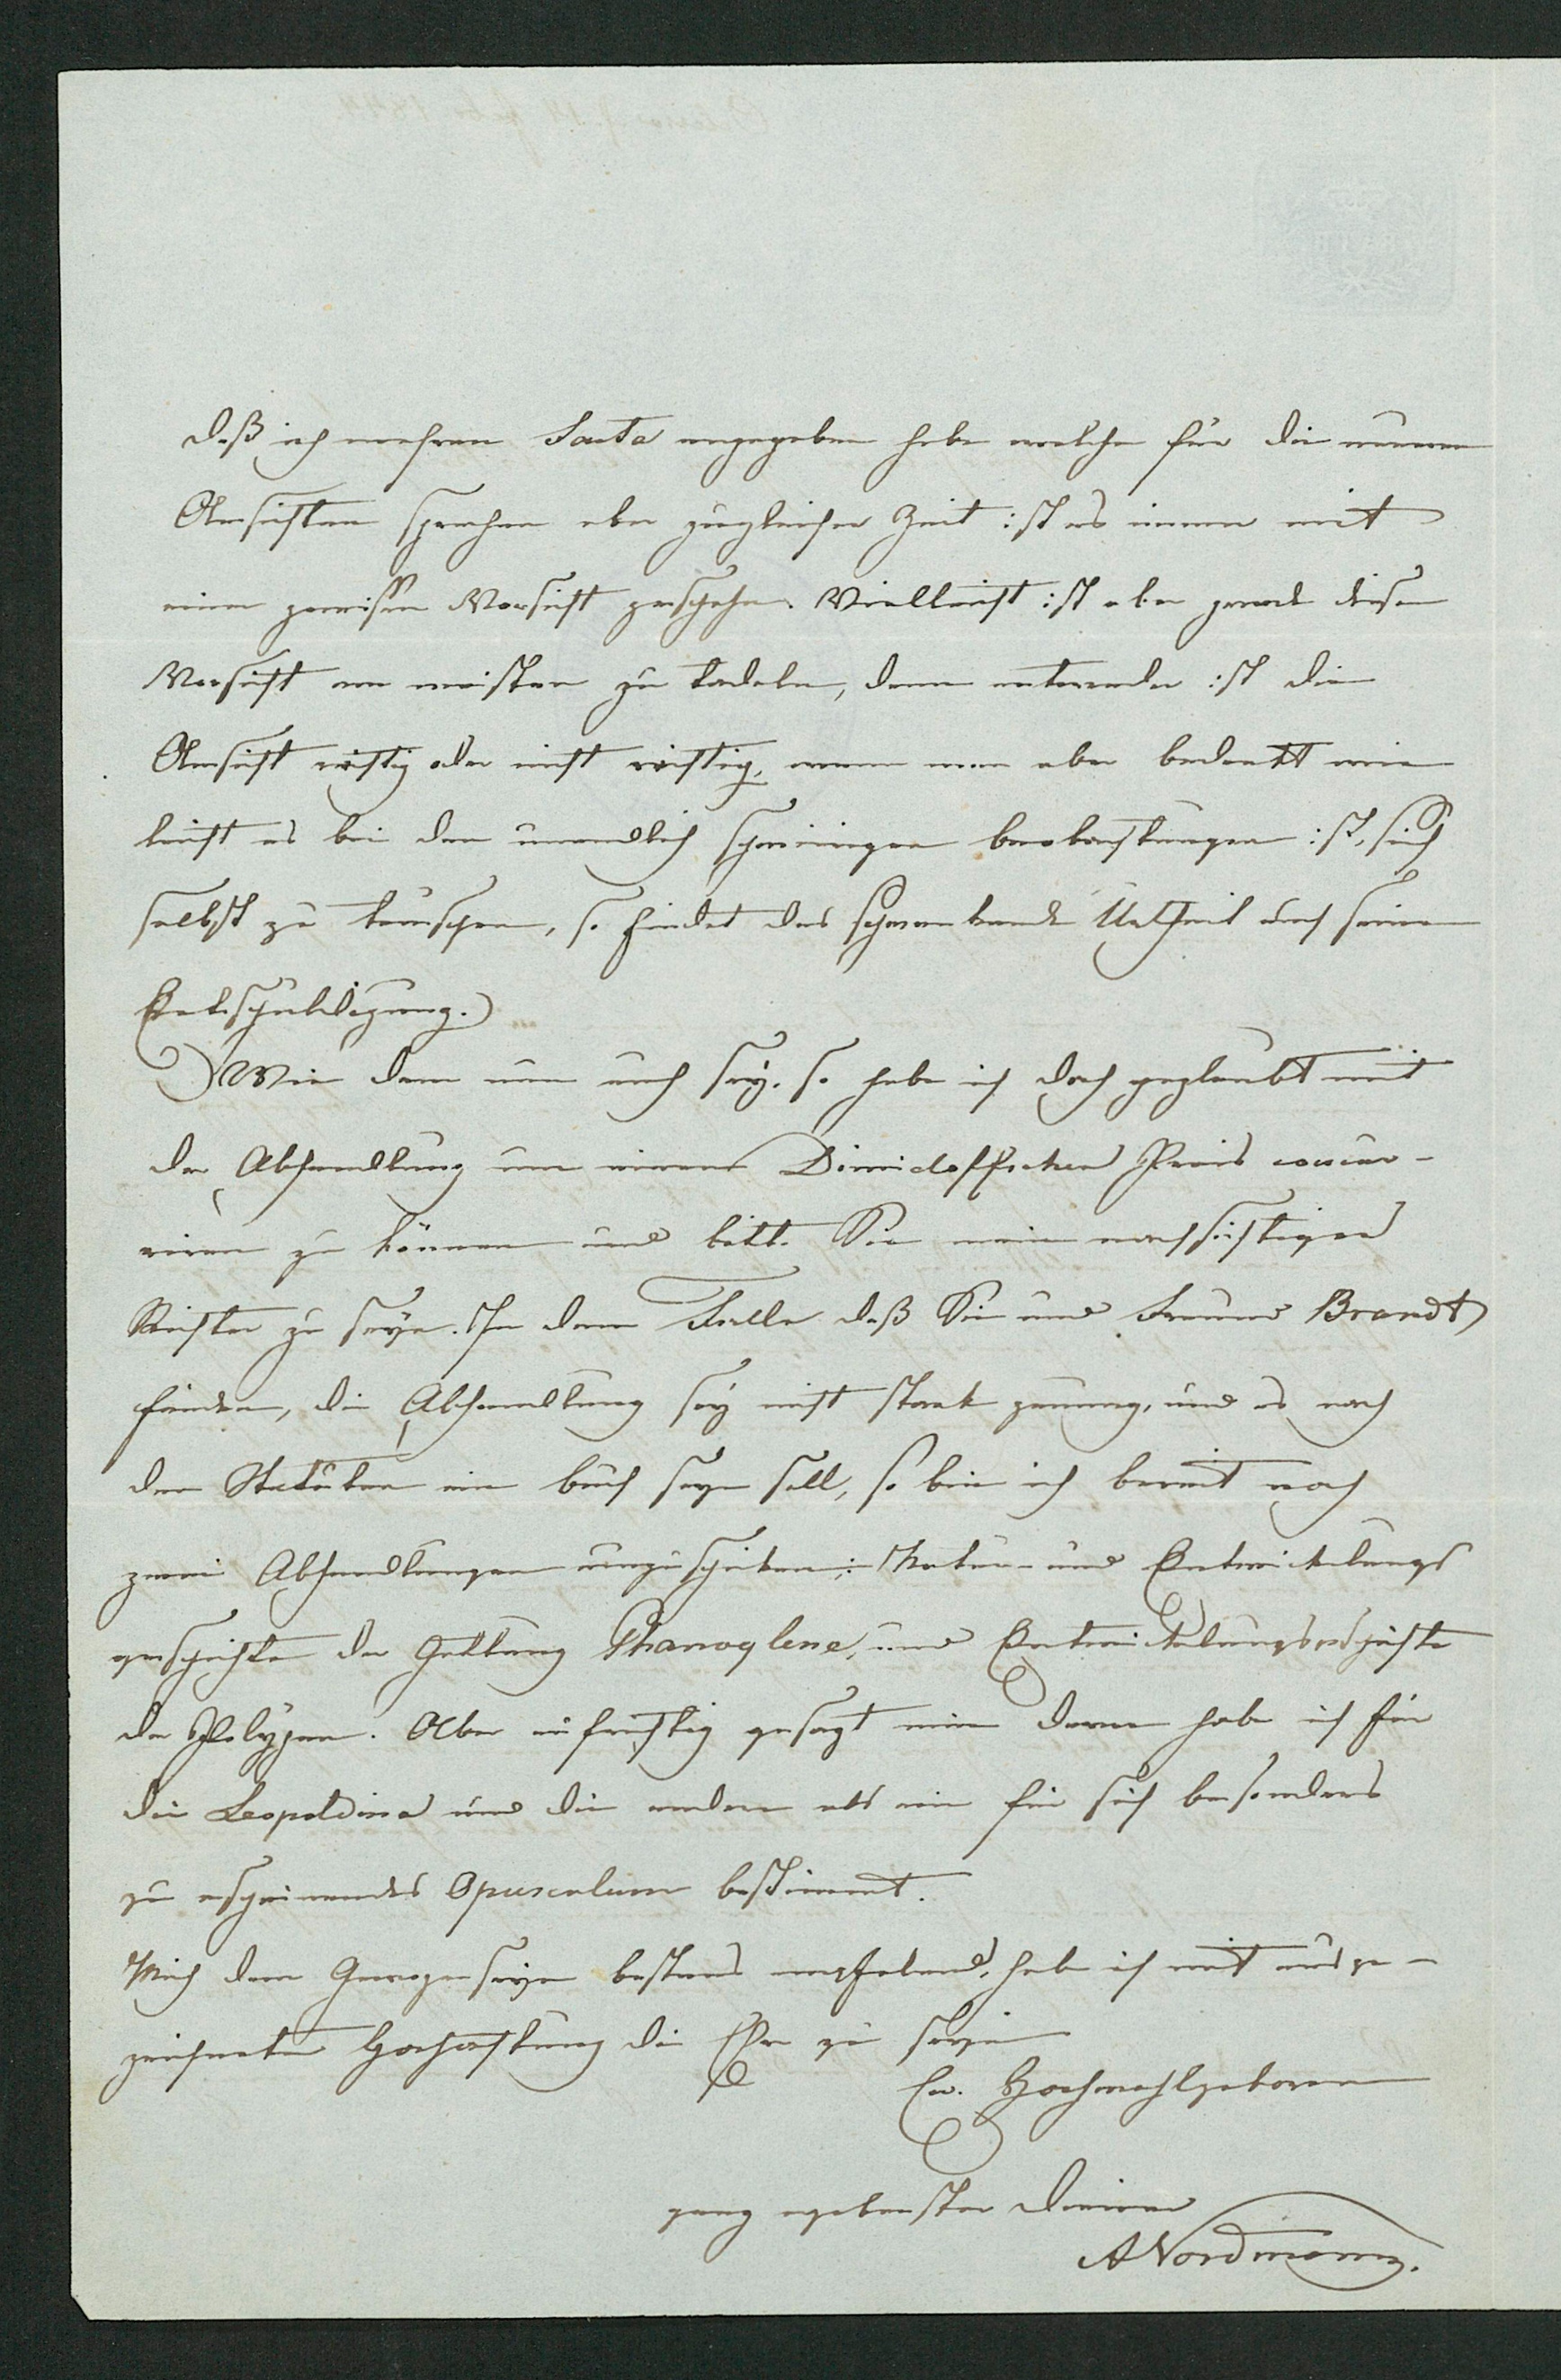 daß ich mehrere Facta angegeben habe welche für die neuere
Ansichten sprechen aber zugleicher Zeit ist es immer mit
einer gewissen Vorsicht geschehen. Vielleicht ist aber gerade diese
Vorsicht am meisten zu tadeln, denn entweder ist die
Ansicht richtig oder nicht richtig, wenn man aber bedenkt wie
leicht es bei den unendlich schwierigen beobachtungen ist, sich
selbst zu teuschen, so findet das schwankende Urtheil auch seine
Entschuldigung.
Wie dem nun auch sey, so habe ich doch geglaubt mit
der Abhandlung um einen Dimidoffschen Preis concur-
riren zu können und bitte Sie mein nachsichtiger
Richter zu seyn. In dem Falle daß Sie und Freund Brandt
finden, die Abhandlung sey nicht stark genung, und es nach
den Statuten ein buch seyn soll, so bin ich bereit noch
zwei Abhandlungen einzuschicken: Natur- und Entwickelungs
geschichte der Gattung Phanoglene, und Entwickelungsgeschichte
der Polypen. Aber aufrichtig gesagt eine davon habe ich für
die Leopoldina und die andere als ein für sich besonders
zu erscheinendes Opusculum bestimmt.
Mich dem Gewogenseyn bestens empfelend, habe ich mit ausge-
zeichneter Hochachtung die Ehre zu seyn
Ew. Hochwohlgeboren
ganz ergebenster Diener
ANordmann.